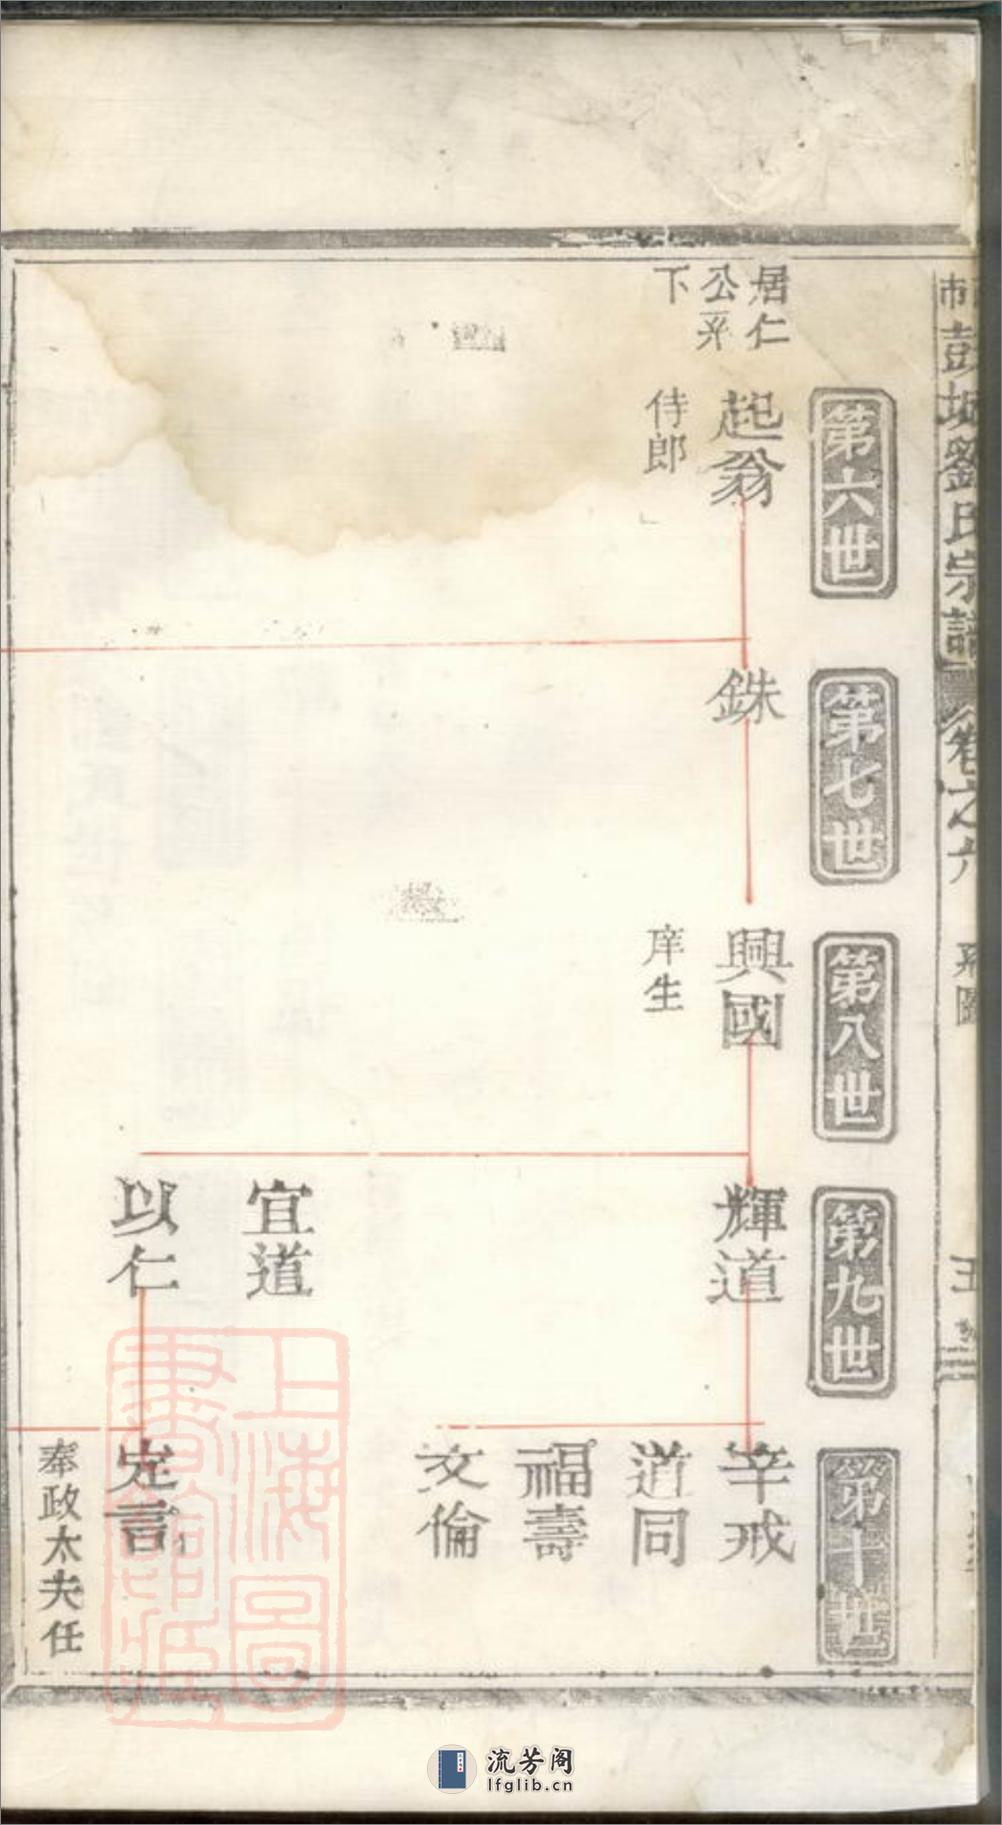 彭城劉氏宗譜
卷之六
系圖
五
第六世
第七世
第八世
第九世
第十世
居仁
公系
下
起翁
侍郎
銖
興國
庠生
輝道
宜道
以仁
辛戒
道同
福壽
文倫
定言
奉政大夫任
上海圖
書館藏
流芳阁
lfglib.cn